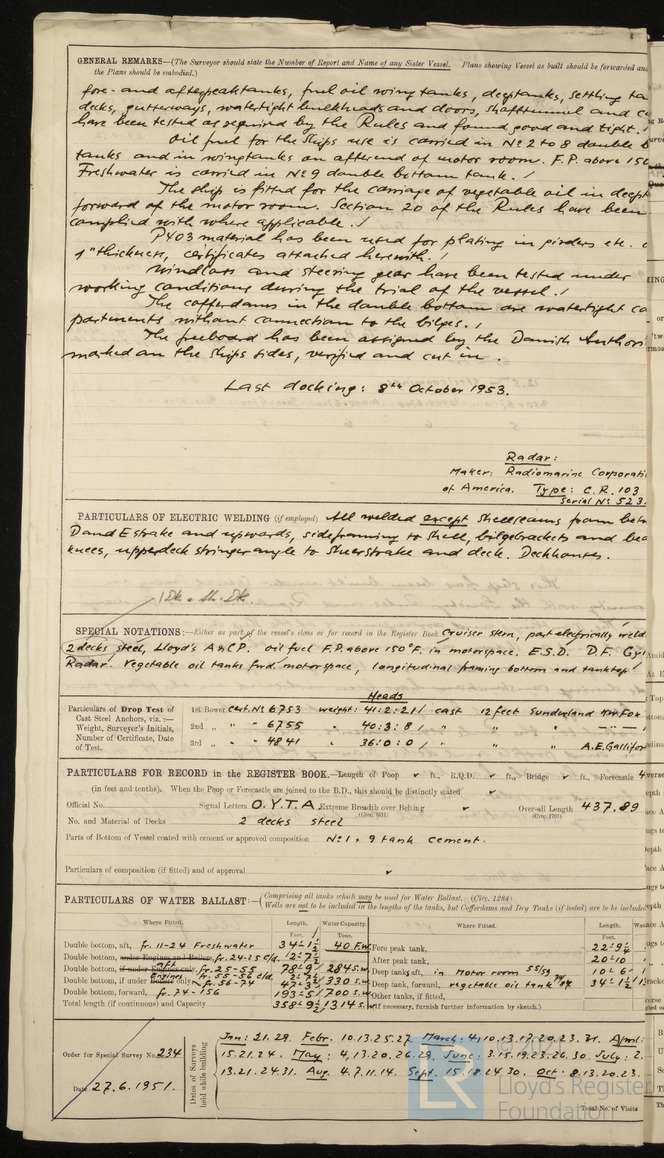 GENERAL REMARKS—(The Surveyor should state the Number of Report and Name of any Sister Vessel. Plans showing Vessel as built should be forwarded an
the Plans should be embodied.)
fore- and afterpeaktanks, fuel oil wing tanks, deeptanks, settling ta
decks, gutterways, watertight bulkheads and doors, shafttunnel and c
have been tested as required by the Rules and found good and tight. !
Oil fuel for the ships use is carried in No 2 to 8 double b
tanks and in wingtanks on aft end of motor room. F.P. above 150
Freshwater is carried in No 9 double bottom tank. !
The ship is fitted for the carriage of vegetable oil in deept
forward of the motor room. Section 20 of the Rules have been
complied with where applicable. !
P403 material has been used for plating in girders etc. o
1" thickness, certificates attached herewith. !
Windlass and steering gear have been tested under
working conditions during the trial of the vessel. !
The cofferdams in the double bottom are watertight co
partments without connection to the bilges. !
The freeboard has been assigned by the Danish Authori
marked on the ships sides, verified and cut in.
Last docking: 8th October 1953.
Radar:
Maker: Radiomarine Corporati
of America. Type: C.R. 103
Serial No 523.
PARTICULARS OF ELECTRIC WELDING (if employed) All welded except shellseams from betw
D and E strake and upwards, sideframing to shell, bilgebrackets and bea
knees, upperdeck stringer angle to sheerstrake and deck. Deckhouses.
1 Dk & Sh. Dk.
SPECIAL NOTATIONS:—Either as part of the vessel's class or for record in the Register Book Cruiser stern, part electrically weld
2 decks steel, Lloyd's A & C P. oil fuel F.P. above 150°F. in motorspace. E.S.D. D.F. Gy
Radar. Vegetable oil tanks fwd. motorspace, longitudinal framing bottom and tanktop!
Heads
Particulars of Drop Test of
Cast Steel Anchors, viz.:—
Weight, Surveyor's Initials,
Number of Certificate, Date
of Test.
1st Bower Cert. No 6753 weight: 41:2:21 / cast 12 feet Sunderland
2nd „ " " 6755 " 40:3:8 / " " "
3rd „ " " 4841 " 36:0:0 / " " " A.E. Gallifor
PARTICULARS FOR RECORD in the REGISTER BOOK.—Length of Poop ft., R.Q.D. ft., Bridge ft., Forecastle 4
(in feet and tenths). When the Poop or Forecastle are joined to the B.D., this should be distinctly stated
Official No. Signal Letters O.Y.T.A Extreme Breadth over Belting Over-all Length 437.89
(Circ. 1611) (Circ. 1707)
No. and Material of Decks 2 decks steel
Parts of Bottom of Vessel coated with cement or approved composition No 1 & 9 tank cement.
Particulars of composition (if fitted) and of approval
PARTICULARS OF WATER BALLAST:—(Comprising all tanks which may be used for Water Ballast. (Circ. 1284)
Wells are not to be included in the lengths of the tanks, but Cofferdams and Dry Tanks (if tested) are to be included
Where Fitted. Length. Feet. Water Capacity. Tons. Where Fitted. Length. Feet. Wat
Double bottom, aft, fr. 11-24 Freshwater 34-1½ 40 F.W. Fore peak tank, 22-9¼
Double bottom, under Engines and Boilers, fr. 24-25 Cfd. 2-7½ After peak tank, 20-10
Double bottom, if under Engines only, aft fr. 25-55 78-9 284 S.W. Deep tank aft, in Motor room 55/59 10-6
Double bottom, if under Boilers only, Engines fr. 55-56 Cfd. fr. 56-74 2-7½ 47-3 330 S.W. Deep tank, forward, vegetable oil tank 34-1½
Double bottom, forward, fr. 74-156 193-5 700 S.W. Other tanks, if fitted,
Total length (if continuous) and Capacity 358-9½ 1314 S.W. (If necessary, furnish further information by sketch.)
Order for Special Survey No. 234
Date 27.6.1951.
Dates of Surveys held while building
Jan: 21.29. Febr. 10.13.25.27. March: 4.10.13.17.20.23.31. April:
15.21.24. May: 4,13.20.26.29. June: 3.15.19.23.26.30. July: 2.
13.21.24.31. Aug. 4.7.11.14. Sept. 15.18.24.30. Oct. 8.13.20.23.
Total No. of Visits
LR
Lloyd's Register
Foundation